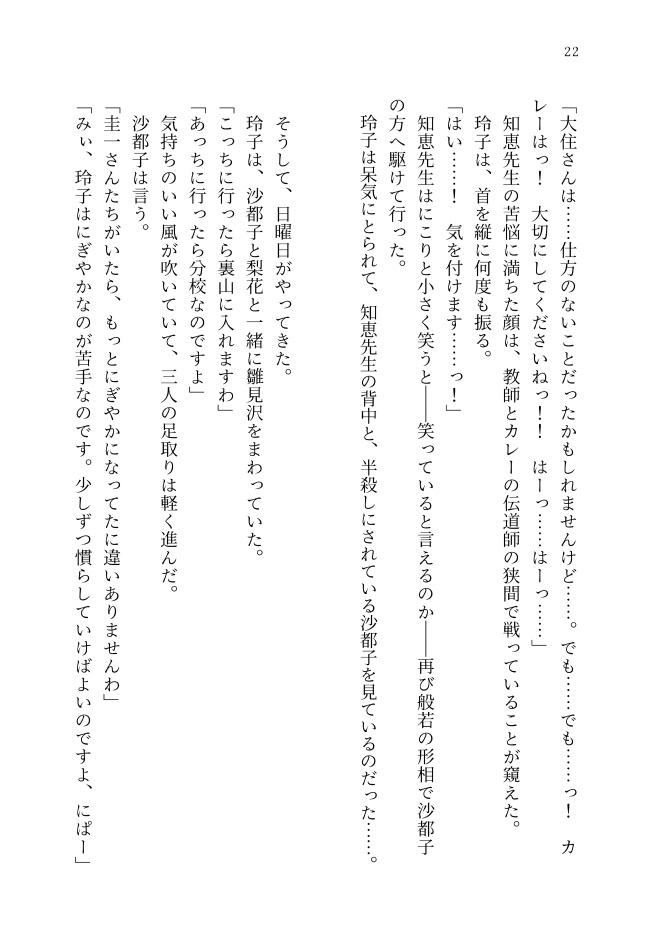 22
「大住さんは……仕方のないことだったかもしれませんけど……。でも……でも……っ！　カ
レーはっ！　大切にしてくださいねっ！！　はーっ……はーっ……」
　知恵先生の苦悩に満ちた顔は、教師とカレーの伝道師の狭間で戦っていることが窺えた。
　玲子は、首を縦に何度も振る。
「はい……！　気を付けます……っ！」
　知恵先生はにこりと小さく笑うと――笑っていると言えるのか――再び般若の形相で沙都子
の方へ駆けて行った。
　玲子は呆気にとられて、知恵先生の背中と、半殺しにされている沙都子を見ているのだった……。
　そうして、日曜日がやってきた。
　玲子は、沙都子と梨花と一緒に雛見沢をまわっていた。
「こっちに行ったら裏山に入れますわ」
「あっちに行ったら分校なのですよ」
　気持ちのいい風が吹いていて、三人の足取りは軽く進んだ。
　沙都子は言う。
「圭一さんたちがいたら、もっとにぎやかになってたに違いありませんわ」
「みぃ、玲子はにぎやかなのが苦手なのです。少しずつ慣らしていけばよいのですよ、にぱー」